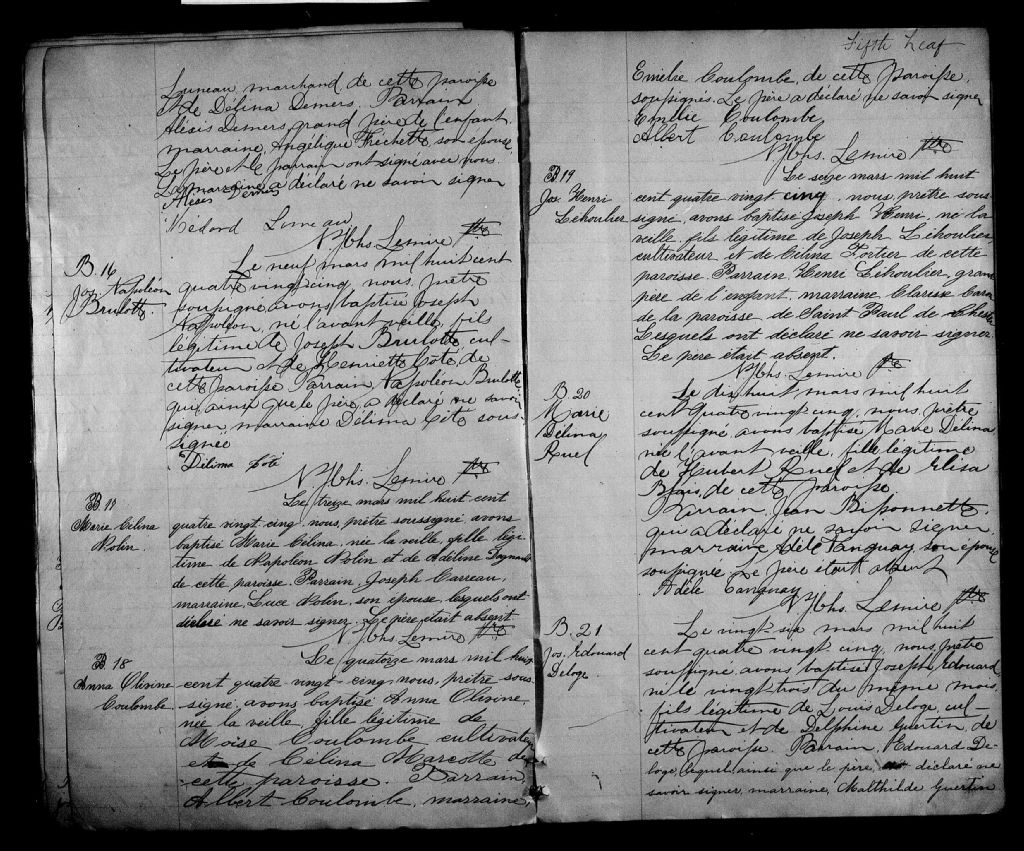 Luneau, marchand de cette paroisse
et de Délina Demers. Parrain
Alexis Demers, grand père de l'enfant,
marraine, Angélique Fréchette, son épouse.
Le père et le parrain ont signé avec nous.
La marraine a déclaré ne savoir signer
Alexis Demers
Médard Luneau
N. Hhs. Lemire Ptre
B. 16
Jos. Napoléon
Brulotte.
Le neuf mars mil huit cent
quatre vingt cinq, nous, prêtre
soussigné avons baptisé Joseph
Napoléon, né l'avant veille, fils
légitime de Joseph Brulotte, cul-
tivateur et de Henriette Coté, de
cette paroisse Parrain, Napoléon Brulotte,
qui ainsi que le père, a déclaré ne savoir
signer, marraine Délima Coté sous-
signée
Délima Coté
N. Hhs. Lemire Ptre
B. 17
Marie Célina
Nolin.
Le treize mars mil huit cent
quatre vingt cinq, nous, prêtre soussigné avons
baptisé Marie Célina, née la veille, fille légi-
time de Napoléon Nolin et de Adéline
de cette paroisse. Parrain, Joseph Carreau,
marraine, Luce Nolin, son épouse, lesquels ont
déclaré ne savoir signer. Le père était absent
N. Hhs. Lemire Ptre
B. 18
Anna Olivine
Coulombe.
Le quatorze mars mil huit
cent quatre vingt-cinq nous, prêtre sous-
signé, avons baptisé Anna Olivine,
née la veille, fille légitime de
Moise Coulombe cultivateur
et de Célina Marcotte de
cette paroisse. Parrain,
Albert Coulombe, marraine,
Fifth Leaf
Emilie Coulombe, de cette paroisse,
soussignés. Le père a déclaré ne savoir signer
Emilie Coulombe
Albert Coulombe
N. Hhs. Lemire Ptre
B 19
Jos. Henri
Lehoulier
Le seize mars mil huit
cent quatre vingt cinq, nous, prêtre sous-
signé, avons baptisé Joseph Henri, né la
veille, fils légitime de Joseph Lehoulier,
cultivateur et de Célina Fortier de cette
paroisse Parrain, Henri Lehoulier, grand
père de l'enfant, marraine Clarisse
de la paroisse de Saint Paul de Chester
Lesquels ont déclaré ne savoir signer.
Le père était absent.
N. Hhs. Lemire Ptre
B. 20
Marie
Délina
Ruel
Le dix huit mars mil huit
cent quatre vingt cinq, nous, prêtre
soussigné avons baptisé Marie Délina
née l'avant veille, fille légitime
de Hubert Ruel et de Elisa
Blais, de cette paroisse
Parrain, Jean Bissonnette,
qui a déclaré ne savoir signer
marraine, Adèle Tanguay, son épouse
soussignée Le père était absent
Adèle Tanguay
N. Hhs. Lemire Ptre
B. 21
Jos. Edouard
Deloge.
Le vingt-six mars mil huit
cent quatre vingt cinq, nous, prêtre
soussigné avons baptisé Joseph Edouard,
né le vingt trois du même mois,
fils légitime de Louis Deloge, cul-
tivateur et de Delphine Guertin, de
cette paroisse. Parrain, Edouard De-
loge, lequel, ainsi que le père, déclaré ne
savoir signer, marraine, Malthilde Guertin